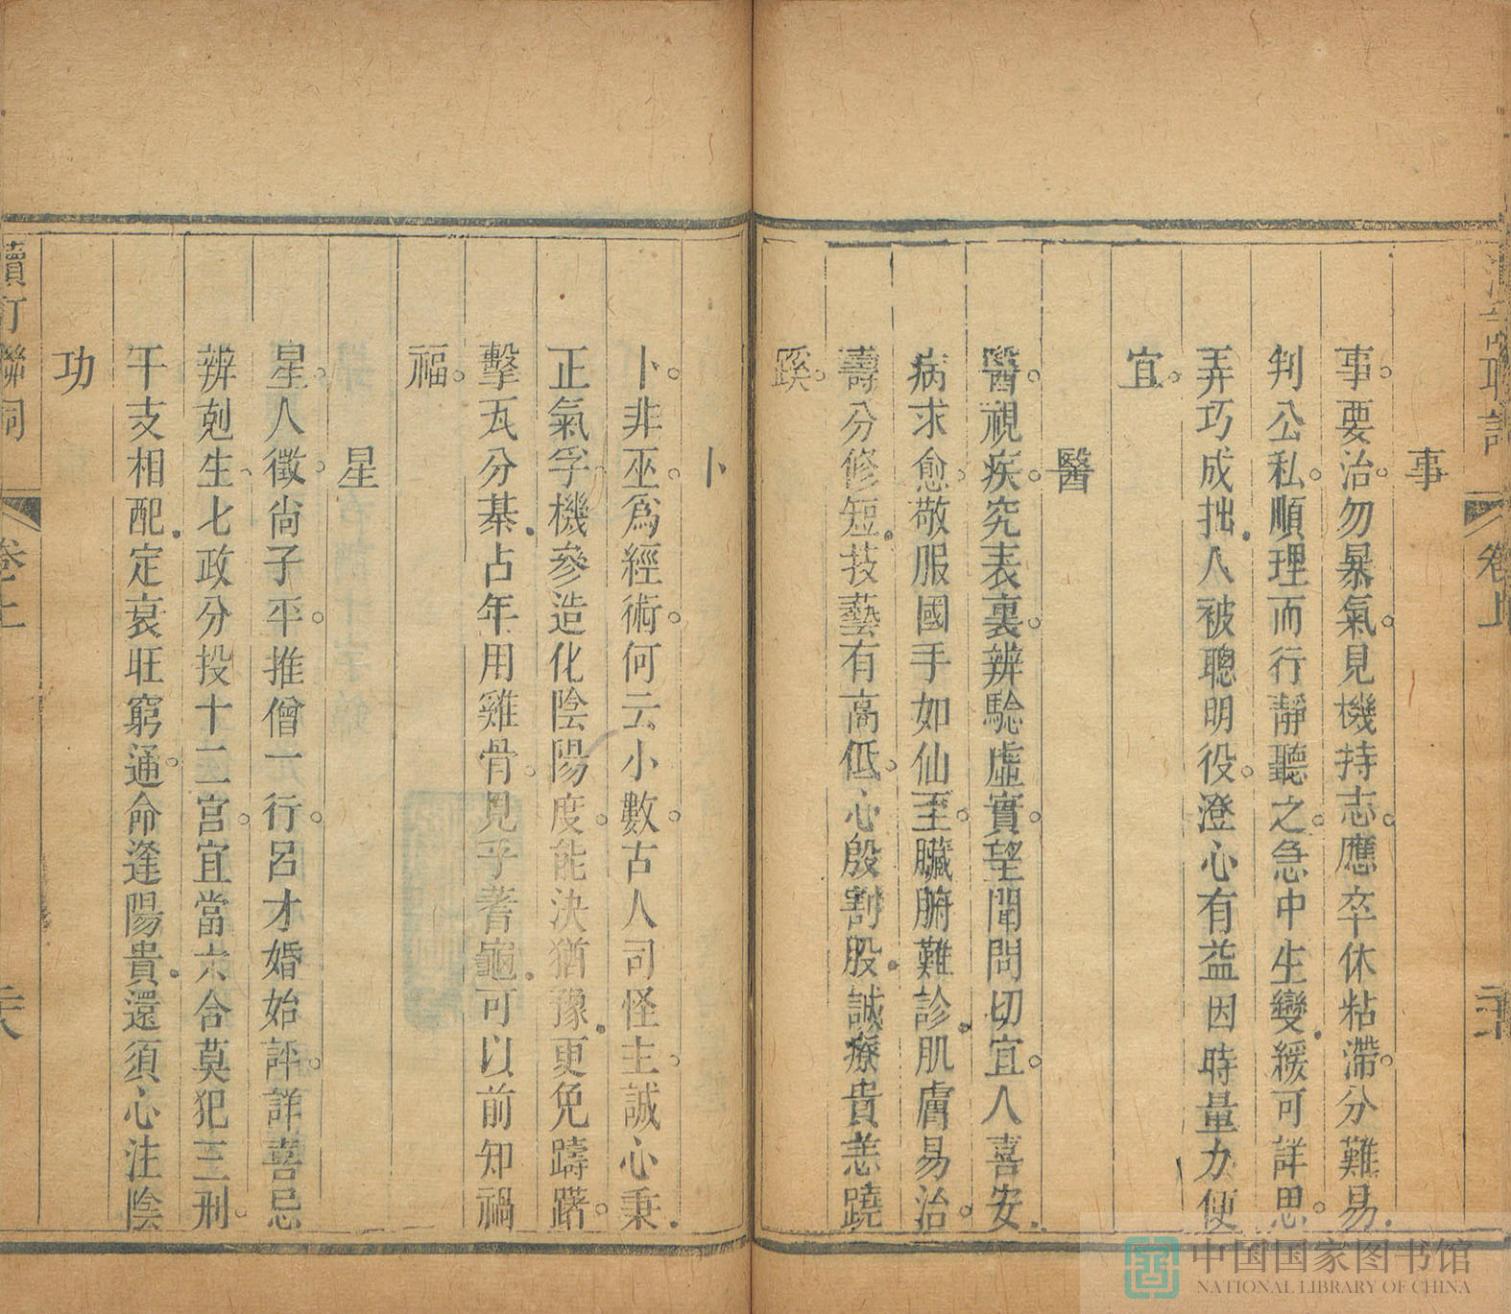 事
事要治勿暴氣見機持志應卒休粘滯分難易
判公私順理而行靜聽之急中生變緩可詳思
弄巧成拙人被聰明役澄心有益因時量力便
宜
醫
醫視疾究表裏辨驗虛實望聞問切宜人喜安
病求愈敬服國手如仙至臟腑難診肌膚易治
壽分修短技藝有高低心殷割股誠療貴恙蹺
蹊
卜
卜非巫爲經術何云小數古人司怪主誠心秉
正氣孚機參造化陰陽度能決猶豫更免躊躇
擊瓦分棊占年用雞骨見乎蓍龜可以前知禍
福
星
星人徵尙子平推僧一行呂才婚始評詳喜忌
辨剋生七政分投十二宮宜當六合莫犯三刑
干支相配定衰旺窮通命逢陽貴還須心注陰
功
續訂聯詞
卷上
二十八
中国国家图书馆
NATIONAL LIBRARY OF CHINA